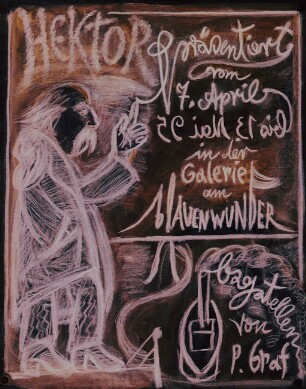 HEKTOR
präsentiert
vom
7. April
bis 13. Mai 95
in der
Galerie
am
blauenWUNDER
bagatellen
von
P. Graf